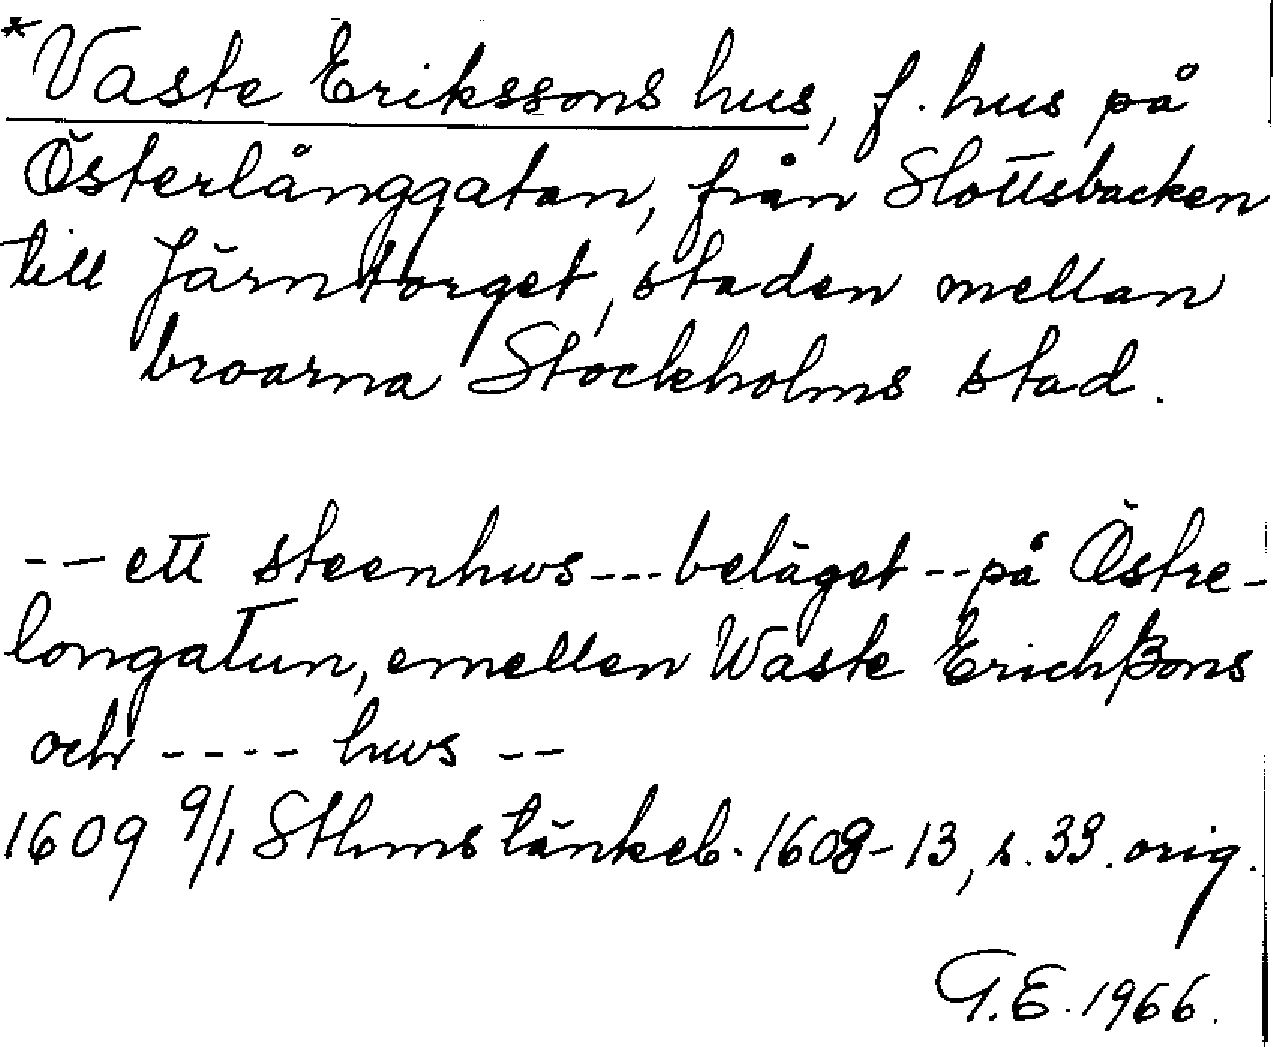 *Vaste Erikssons hus, f. hus på
Österlånggatan, från Slottsbacken
till Järntorget, staden mellan
broarna Stockholms stad.
-- ett steenhws --- beläget -- på Östre-
longatun, emellen Waste Erichßons
och ---- hws --
1609 9/1 Sthms tänkeb. 1608-13, s. 33. orig.
G.E. 1966.